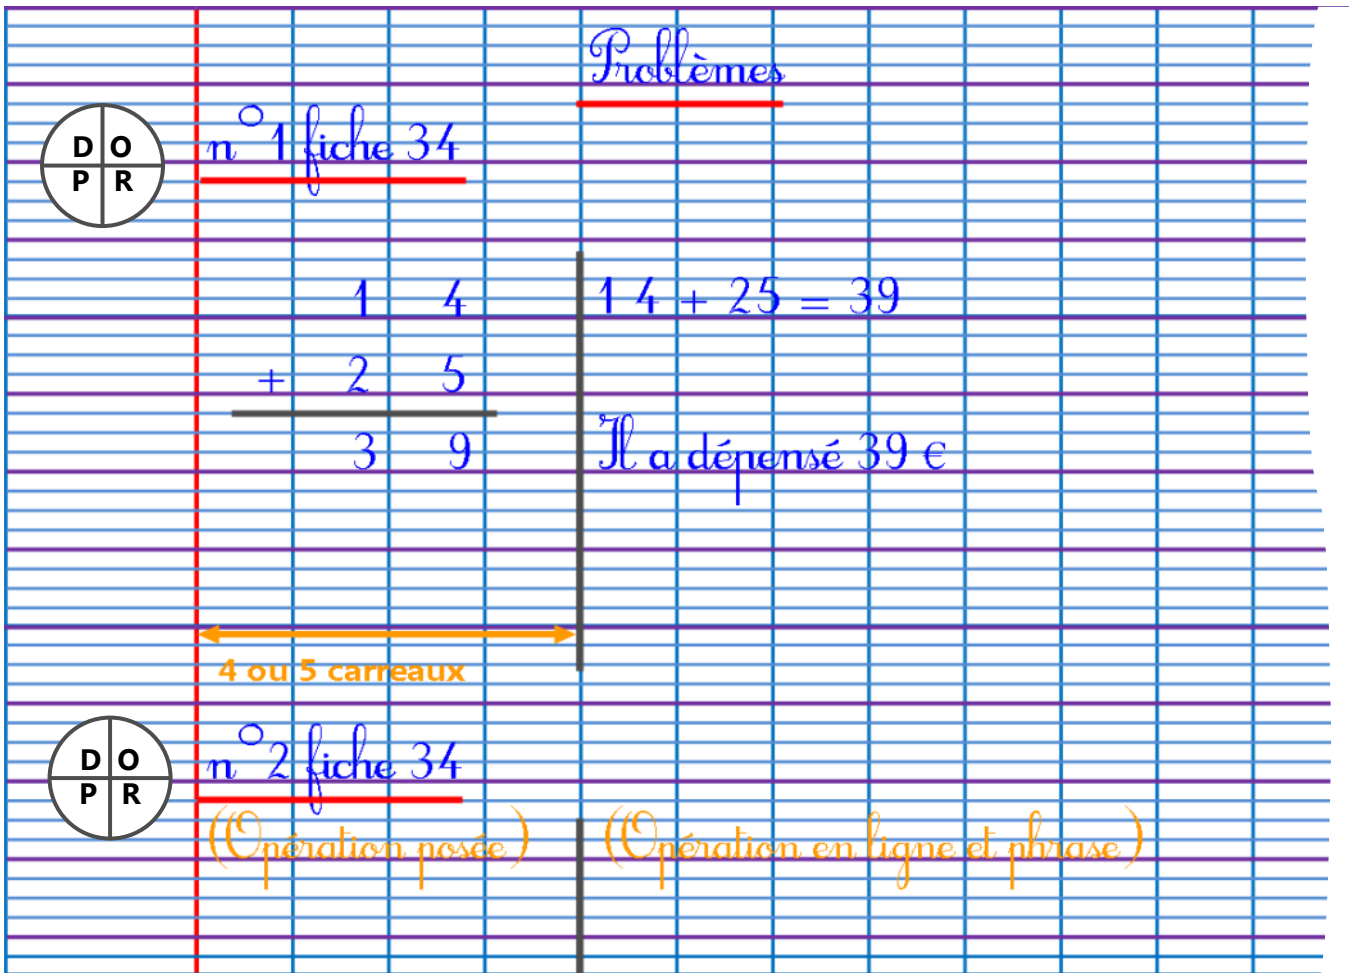 Problèmes
D O
P R
n° 1 fiche 34
1 4
+ 2 5
3 9
14 + 25 = 39
Il a dépensé 39 €
4 ou 5 carreaux
D O
P R
n° 2 fiche 34
(Opération posée)
(Opération en ligne et phrase)